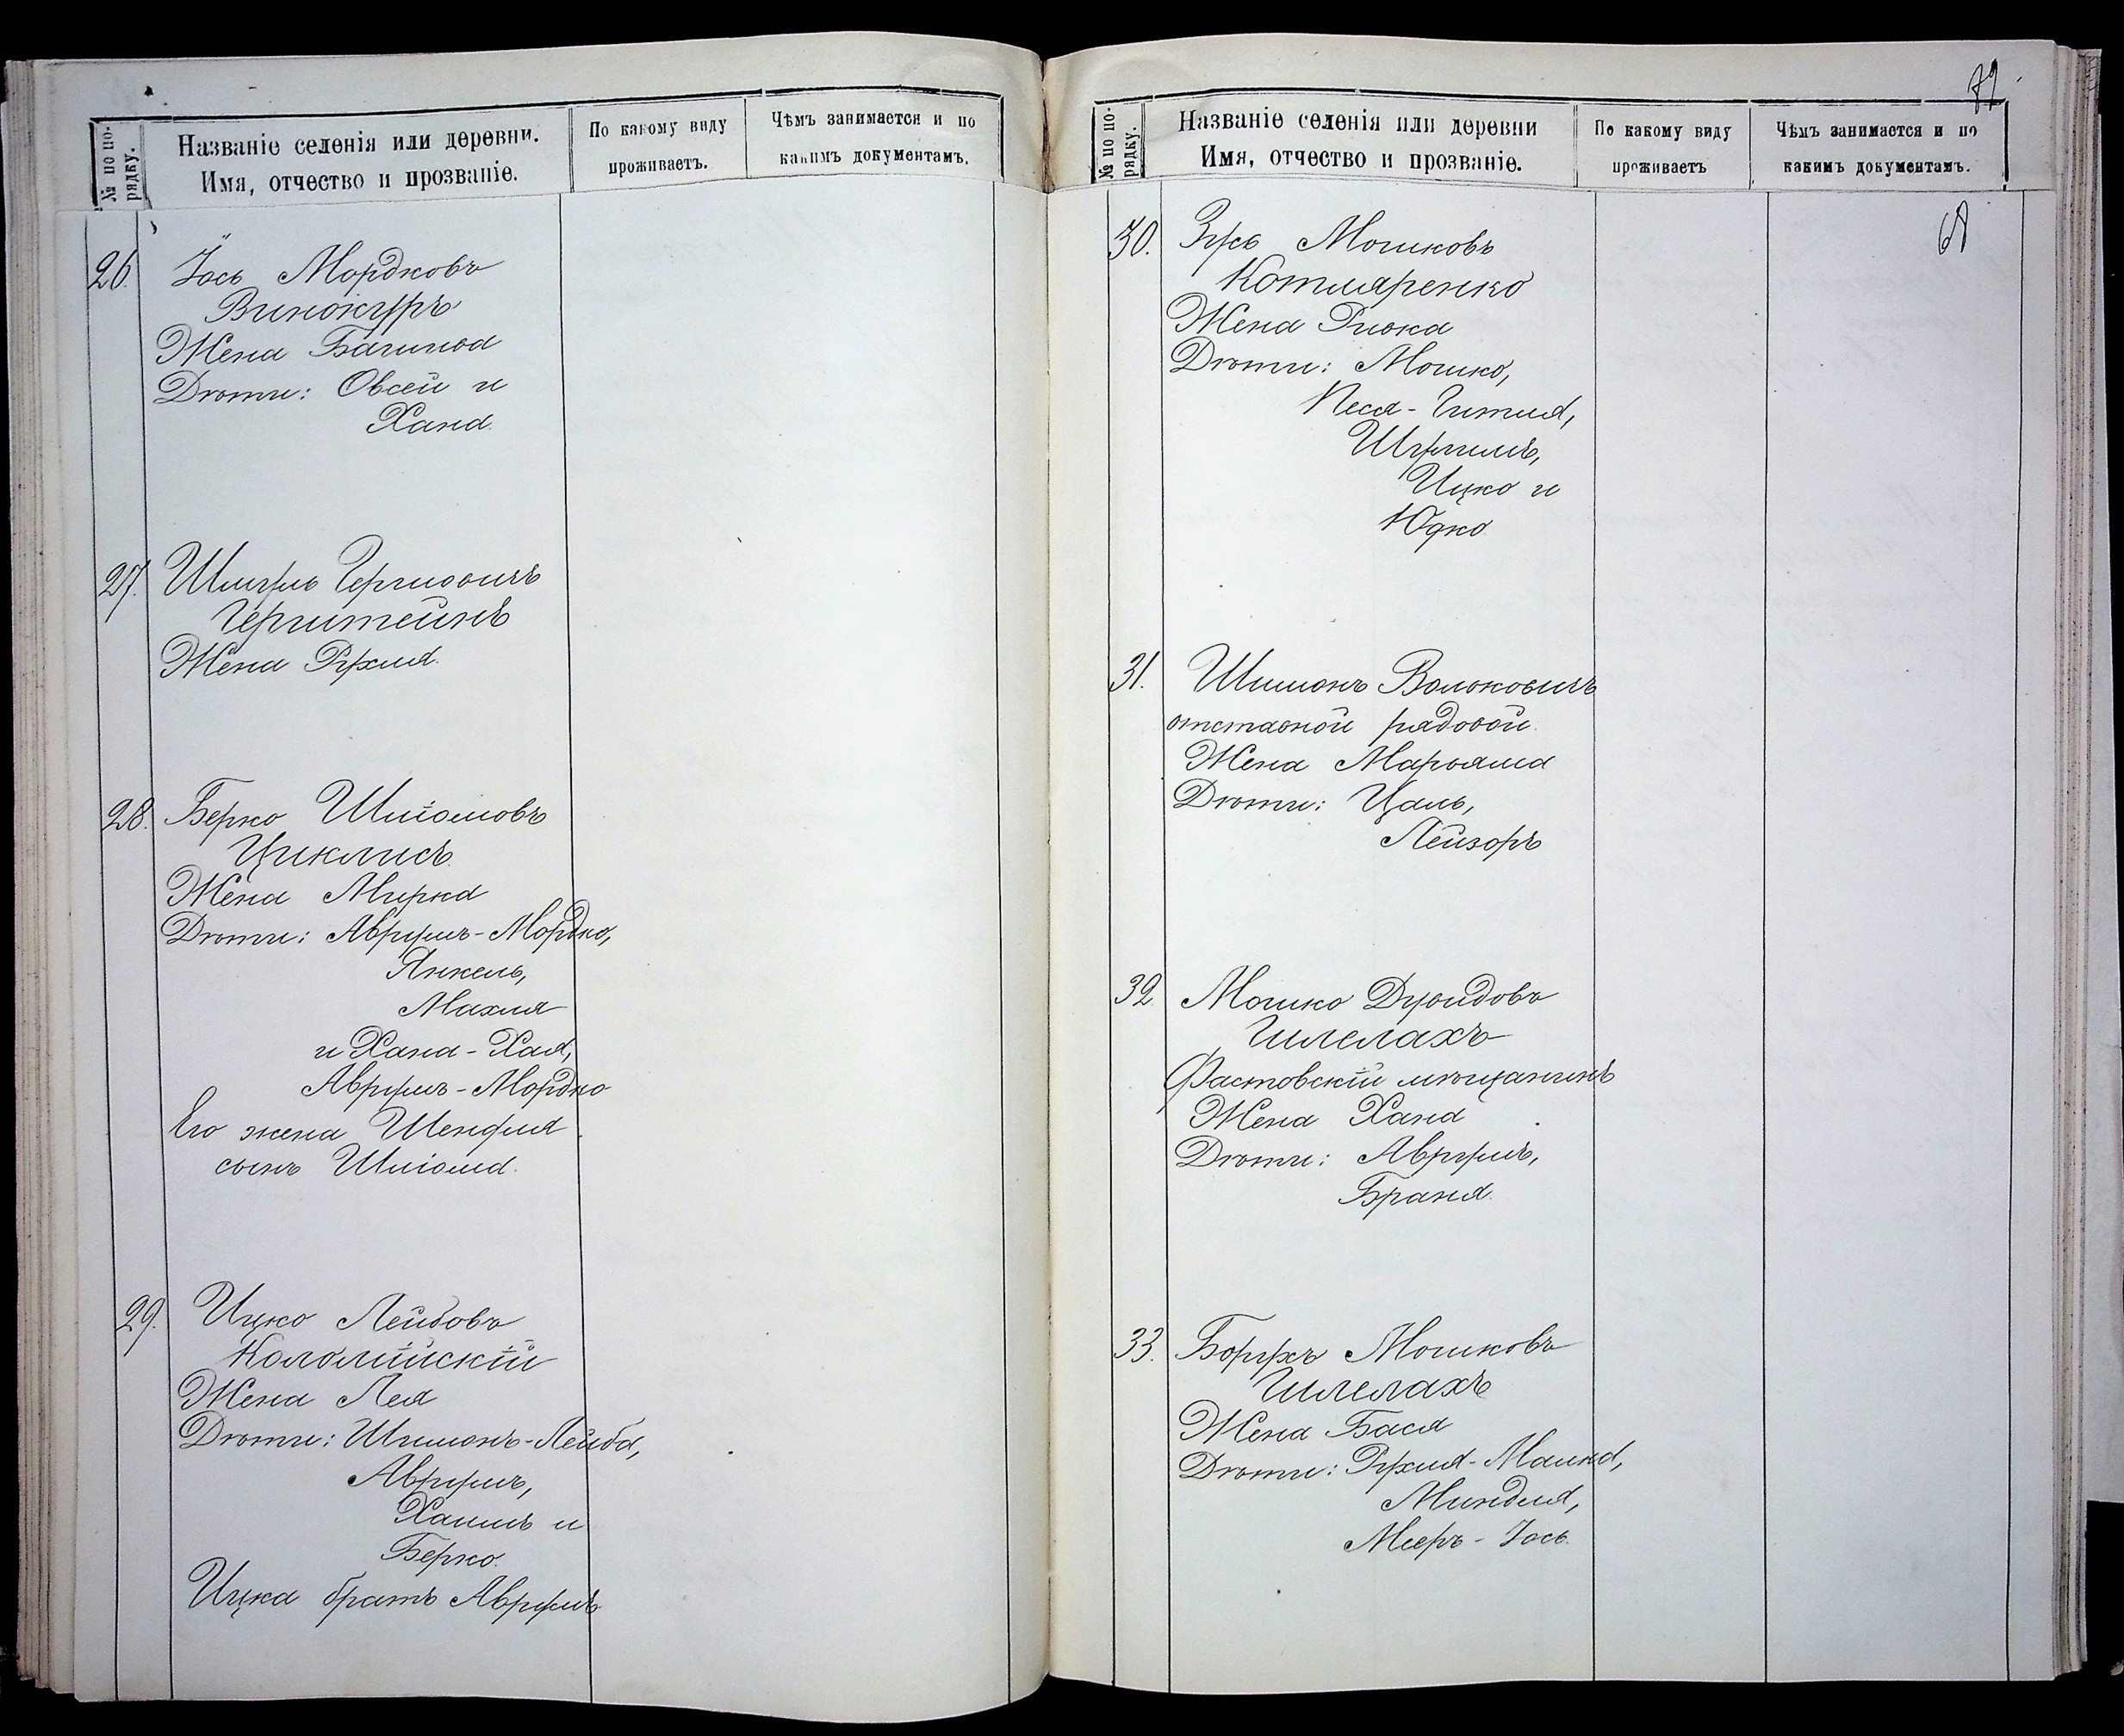 № по по-
рядку.
Названіе селенія или деревни.
Имя, отчество и прозваніе.
По какому виду
проживаетъ.
Чѣмъ занимается и по
какимъ документамъ.
26. Іось Мордковъ
Винокуръ
Жена
Дѣти: Овсей и
Хана.
27. Шмуль
Жена Рухля.
28. Берко Шліомовъ
Жена Мирка
Дѣти: Аврумъ-Мордко,
Янкель,
Махля
и Хана-Хая,
Аврумъ-Мордко
Его жена Шендля
сынъ Шліома.
29. Ицко Лейбовъ
Коломійскій
Жена Лея
Дѣти: Шимонъ-Лейба,
Аврумъ,
Хаимъ и
Берко.
Ицка братъ Аврумъ
№ по по-
рядку.
Названіе селенія или деревни
Имя, отчество и прозваніе.
По какому виду
проживаетъ
Чѣмъ занимается и по
какимъ документамъ.
30. Зусь Мошковъ
Котляренко
Жена Ривка
Дѣти: Мошко,
Песя-Гитля,
Шмуль,
Ицко и
Юдко.
31. Шимонъ Вольковичъ
отставной рядовой.
Жена Марьяма
Дѣти: Цаль,
Лейзоръ
32. Мошко Дувидовъ
Шмелахъ
Фастовскій мѣщанинъ
Жена Хана
Дѣти: Аврумъ,
Браня.
33. Борухъ Мошковъ
Шмелахъ
Жена Бася
Дѣти: Рухля-Малка,
Миндля,
Мееръ-Іось.